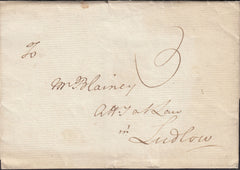 To
3
Mr Blainey
Att.y at Law
in
Ludlow